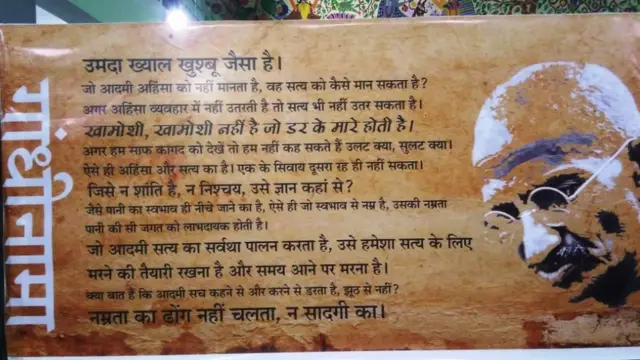 गांधीनामा
उमदा ख्याल खुश्बू जैसा है।
जो आदमी अहिंसा को नहीं मानता है, वह सत्य को कैसे मान सकता है?
अगर अहिंसा व्यवहार में नहीं उतरती है तो सत्य भी नहीं उतर सकता है।
खामोशी, खामोशी नहीं है जो डर के मारे होती है।
अगर हम साफ कागद को देखें तो हम नहीं कह सकते हैं उलट क्या, सुलट क्या।
ऐसे ही अहिंसा और सत्य का है। एक के सिवाय दूसरा रह ही नहीं सकता।
जिसे न शांति है, न निश्चय, उसे ज्ञान कहां से?
जैसे पानी का स्वभाव ही नीचे जाने का है, ऐसे ही जो स्वभाव से नम्र है, उसकी नम्रता
पानी की सी जगत को लाभदायक होती है।
जो आदमी सत्य का सर्वथा पालन करता है, उसे हमेशा सत्य के लिए
मरने की तैयारी रखना है और समय आने पर मरना है।
क्या बात है कि आदमी सच कहने से और करने से डरता है, झूठ से नहीं?
नम्रता का ढोंग नहीं चलता, न सादगी का।